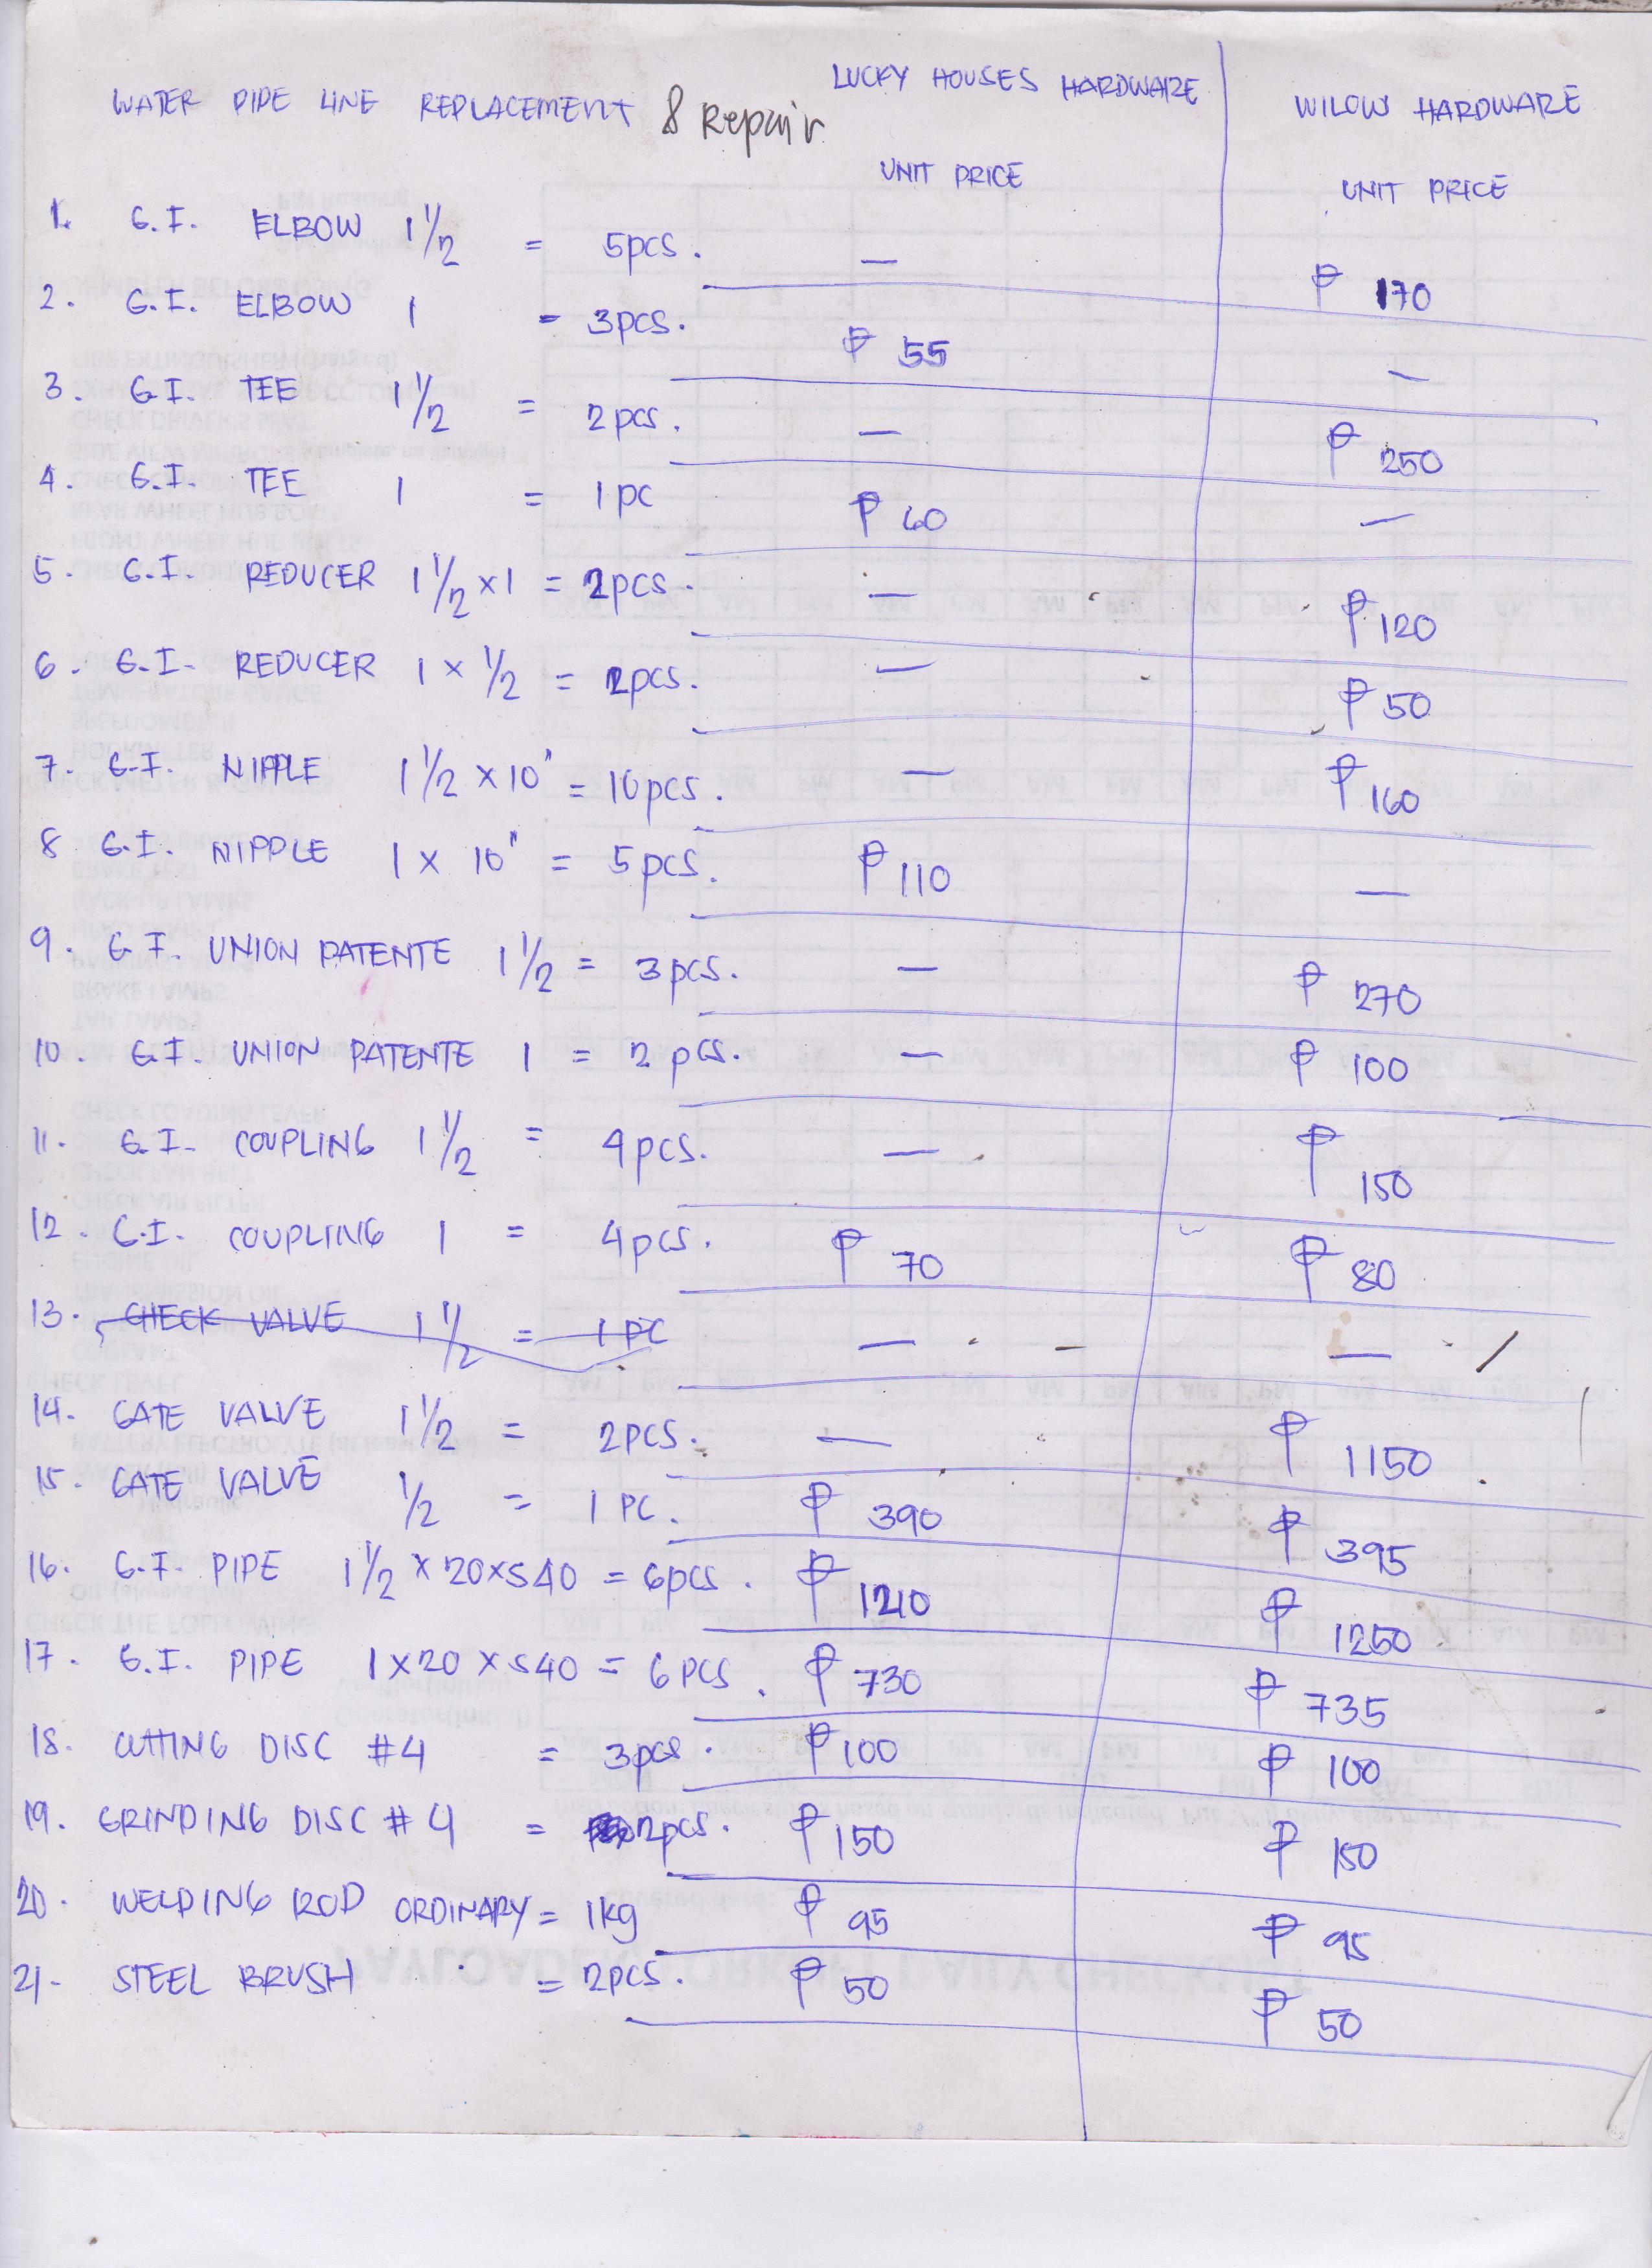 WATER PIPE LINE REPLACEMENT & Repair LUCKY HOUSES HARDWARE WILOW HARDWARE
UNIT PRICE UNIT PRICE
1. G.I. ELBOW 1 1/2 = 5pcs. — ₱ 170
2. G.I. ELBOW 1 = 3pcs. ₱ 55 —
3. G.I. TEE 1 1/2 = 2pcs. — ₱ 250
4. G.I. TEE 1 = 1pc ₱ 60 —
5. G.I. REDUCER 1 1/2 x 1 = 2pcs. — ₱ 120
6. G.I. REDUCER 1 x 1/2 = 2pcs. — ₱ 50
7. G.I. NIPPLE 1 1/2 x 10" = 10pcs. — ₱ 160
8 G.I. NIPPLE 1 x 10" = 5pcs. ₱ 110 —
9. G.I. UNION PATENTE 1 1/2 = 3pcs. — ₱ 270
10. G.I. UNION PATENTE 1 = 2pcs. — ₱ 100
11. G.I. COUPLING 1 1/2 = 4pcs. — ₱ 150
12. G.I. COUPLING 1 = 4pcs. ₱ 70 ₱ 80
13. CHECK VALVE 1 1/2 = 1PC — —
14. GATE VALVE 1 1/2 = 2PCS. — ₱ 1150
15. GATE VALVE 1/2 = 1PC. ₱ 390 ₱ 395
16. G.I. PIPE 1 1/2 x 20 x S40 = 6pcs. ₱ 1210 ₱ 1250
17. G.I. PIPE 1 x 20 x S40 = 6PCS. ₱ 730 ₱ 735
18. CUTTING DISC #4 = 3pcs. ₱ 100 ₱ 100
19. GRINDING DISC #4 = 2pcs. ₱ 150 ₱ 150
20. WELDING ROD ORDINARY = 1kg ₱ 95 ₱ 95
21- STEEL BRUSH = 2PCS. ₱ 50 ₱ 50